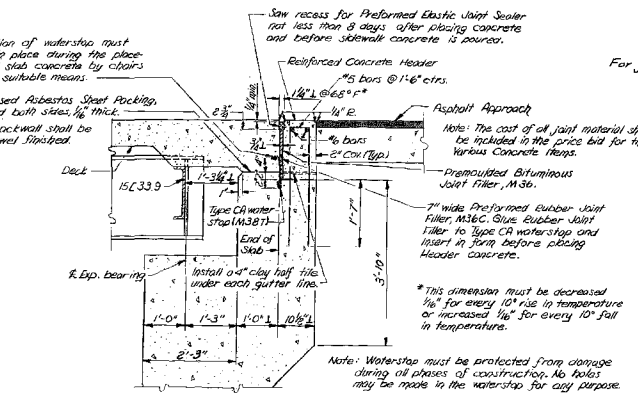 Saw recess for Preformed Elastic Joint Sealer
not less than 8 days after placing concrete
and before sidewalk concrete is poured.
ion of waterstop must
place during the place-
slab concrete by chairs
suitable means.
sed Asbestos Sheet Packing,
d both sides, 1/16" thick.
ackwall shall be
wel finished.
Reinforced Concrete Header
#5 bars @ 1'-6" ctrs.
1 1/4" ⊥ @ 68° F*
1/4" R.
2 3/4"
1/4" min.
For
Asphalt Approach
Note: The cost of all joint material sh
be included in the price bid for th
Various Concrete Items.
#6 bars
2" Cov. (Typ.)
Premoulded Bituminous
Joint Filler, M36.
Deck
15[33.9
1'-3 1/4" ⊥
1"
Type CA water
stop (M38T)
End of
Slab
1'-7"
3'-10"
7" wide Preformed Rubber Joint
Filler, M36C. Glue Rubber Joint
Filler to Type CA waterstop and
Insert in form before placing
Header concrete.
℄ Exp. bearing
Install a 4" clay half tile
under each gutter line.
1'-0"
1'-3"
1'-0" ⊥
10 1/2" ⊥
2'-3"
* This dimension must be decreased
1/16" for every 10° rise in temperature
or increased 1/16" for every 10° fall
in temperature.
Note: Waterstop must be protected from damage
during all phases of construction. No holes
may be made in the waterstop for any purpose.